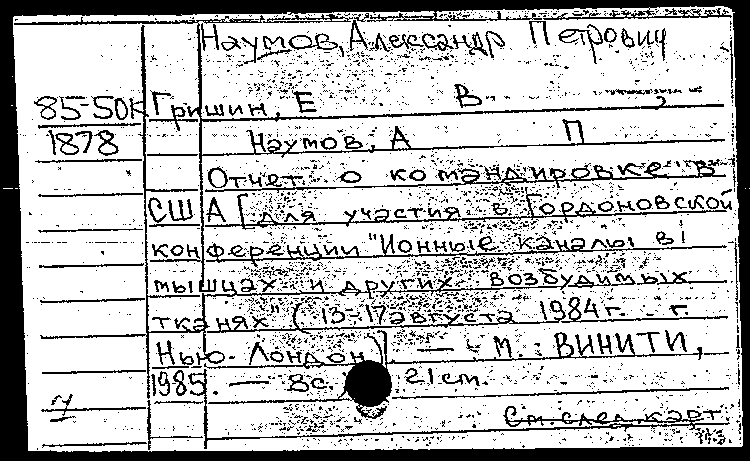 Наумов, Александр Петрович
85-50К Гришин, Е В ,
1878 Наумов, А П
Отчет о командировке в
США [для участия в Гордоновской
конференции "Ионные каналы в
мышцах и других возбудимых
тканях" (13-17 августа 1984 г. г.
Нью-Лондон)]. — М.: ВИНИТИ,
1985. — 8с. 21см.
См. след. карт.